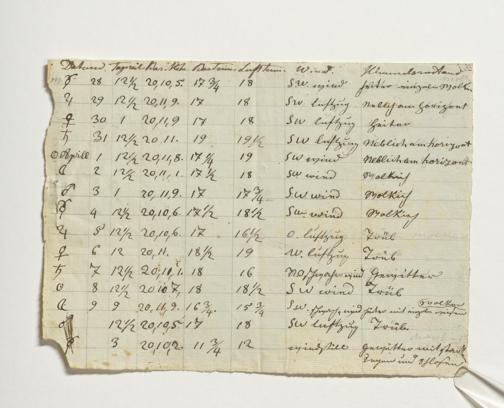 Datum Wind. Himmelsstand
☿ 28 12½ 20,10,5. 17¾ 18 SW wind heiter einzeln Wolk
♃ 29 12½ 20,11,9. 17 18 SW luftzug Neblich am horizont
♀ 30 1 20,11,9 17 18 SW luftzug heiter
♄ 31 12½ 20,11. 19 19½ SW luftzug Neblich am horizont
☉ Aprill 1 12½ 20,11,8. 17¼ 19 SW wind Neblich am horizont
☾ 2 12½ 20,11,1. 17½ 18 SW wind Wolkich
♂ 3 1 20,11,9. 17 17¾ SW wind Wolkich
☿ 4 12½ 20,10,6. 17½ 18½ SW wind Wolkich
♃ 5 12½ 20,10,6. 17 16½ O. luftzug Trüb
♀ 6 12 20,11. 18½ 19 W. luftzug Trüb
♄ 7 12½ 20,10,1. 18 16 wind Gewitter
☉ 8 12½ 20,10,7. 18 18½ SW wind Trüb
☾ 9 9 20,11,9. 16¾ 15¾ SW. wind heiter mit Wolken
♂ 12½ 20,10,5 17 18 SW luftzug Trüb
3 20,10,2. 11¾ 12 windstill Gewitter mit stark
Regen und Schloßen